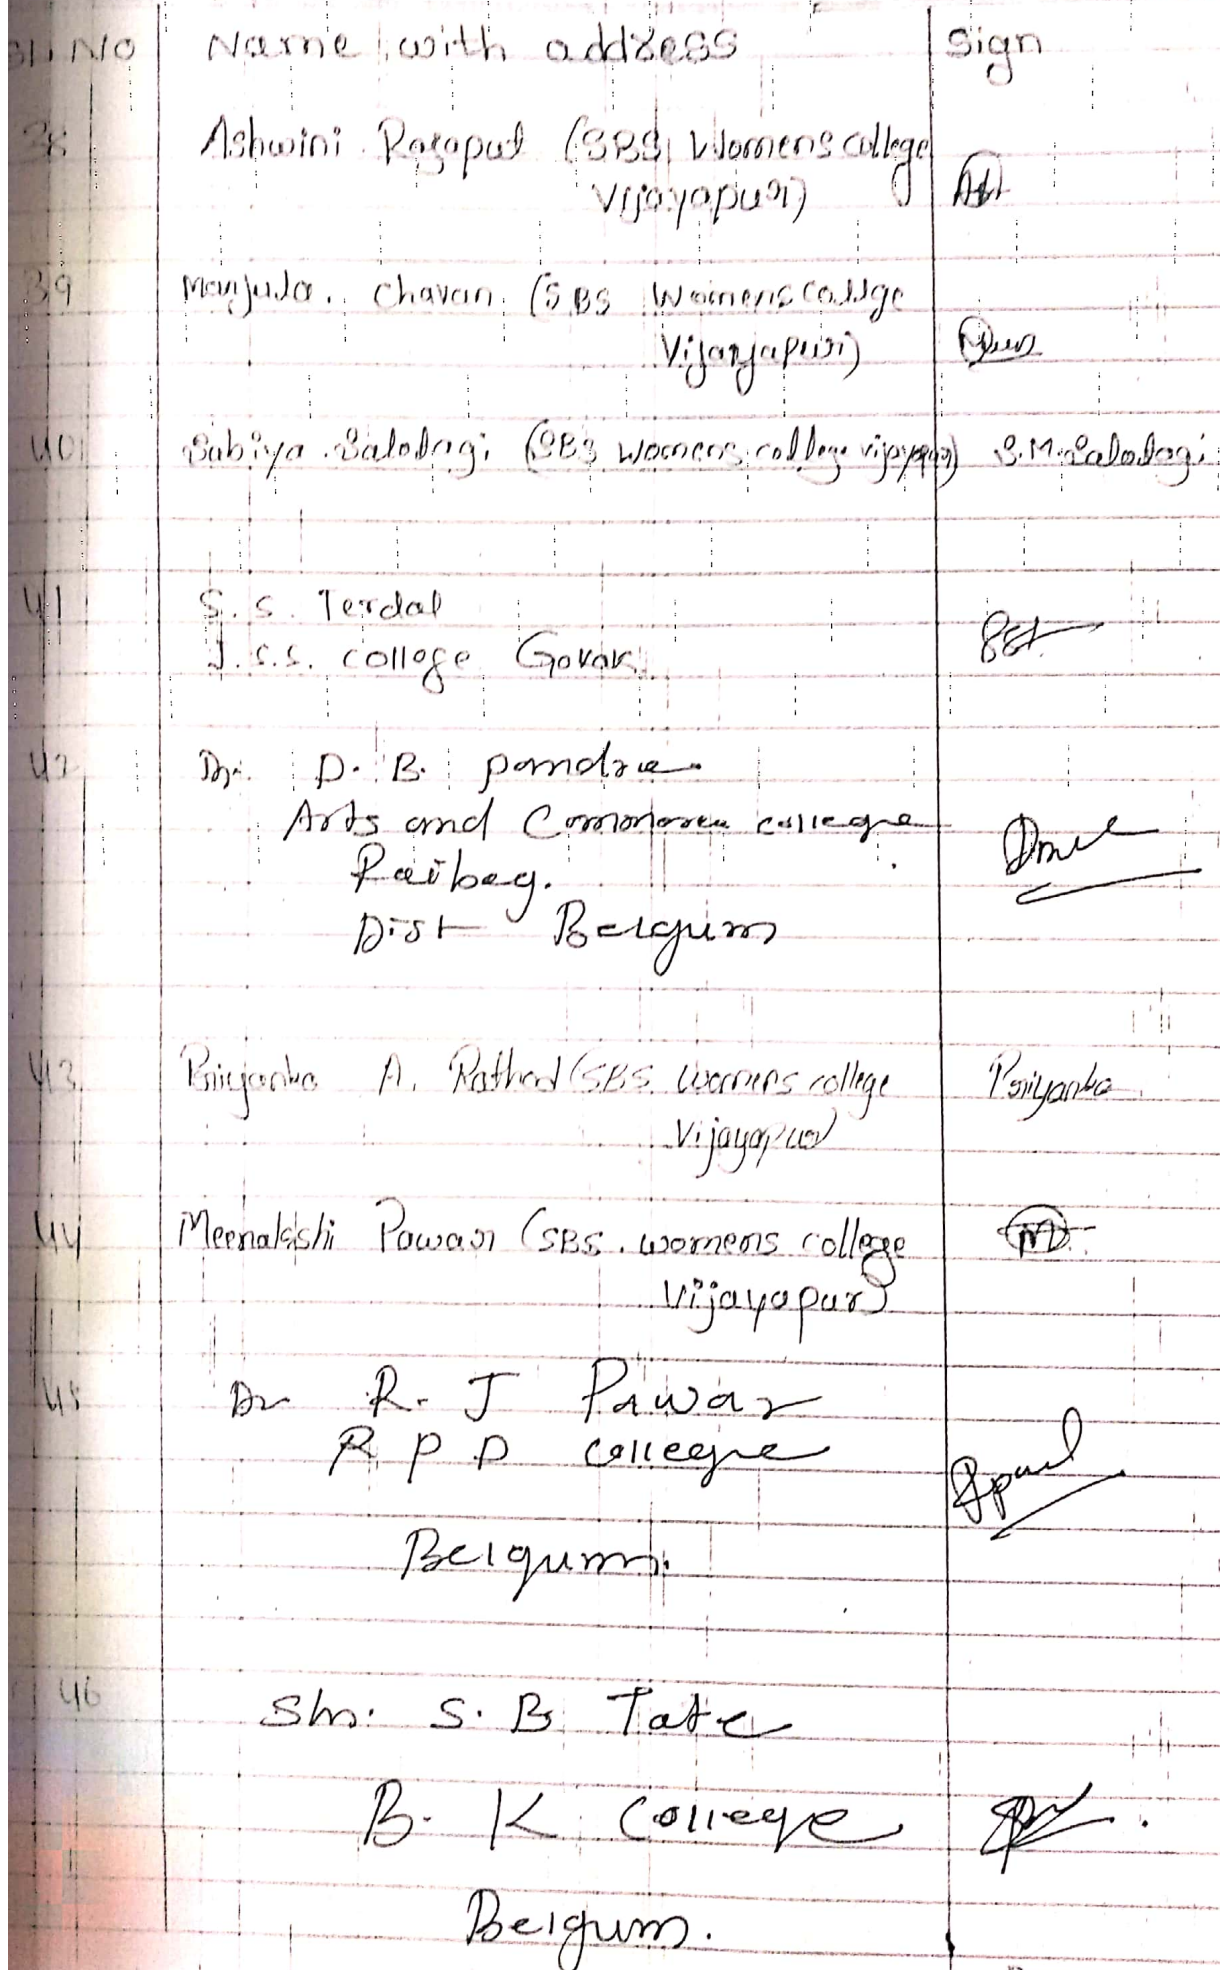 Sl. No Name with address Sign
38 Ashwini Rajaput (SBS Womens college
Vijayapur)
39 Manjula. Chavan (SBS Womens collge
Vijayapur)
40 Sabiya Salodagi (SBS womens college vijayapur) S.M.Salodagi
41 S. S. Terdal
J.S.S. college Gokak
42 Dr. D. B. pomdre
Arts and Commerce college
Raibag.
Dist Belgum
43 Priyanka A. Rathod (SBS. womens college Priyanka
Vijayapur
44 Meenakshi Pawar (SBS. womens college
Vijayapur)
45 Dr R. J Pawar
R P D College
Belgum.
46 Shri. S. B Tate
B. K College
Belgum.